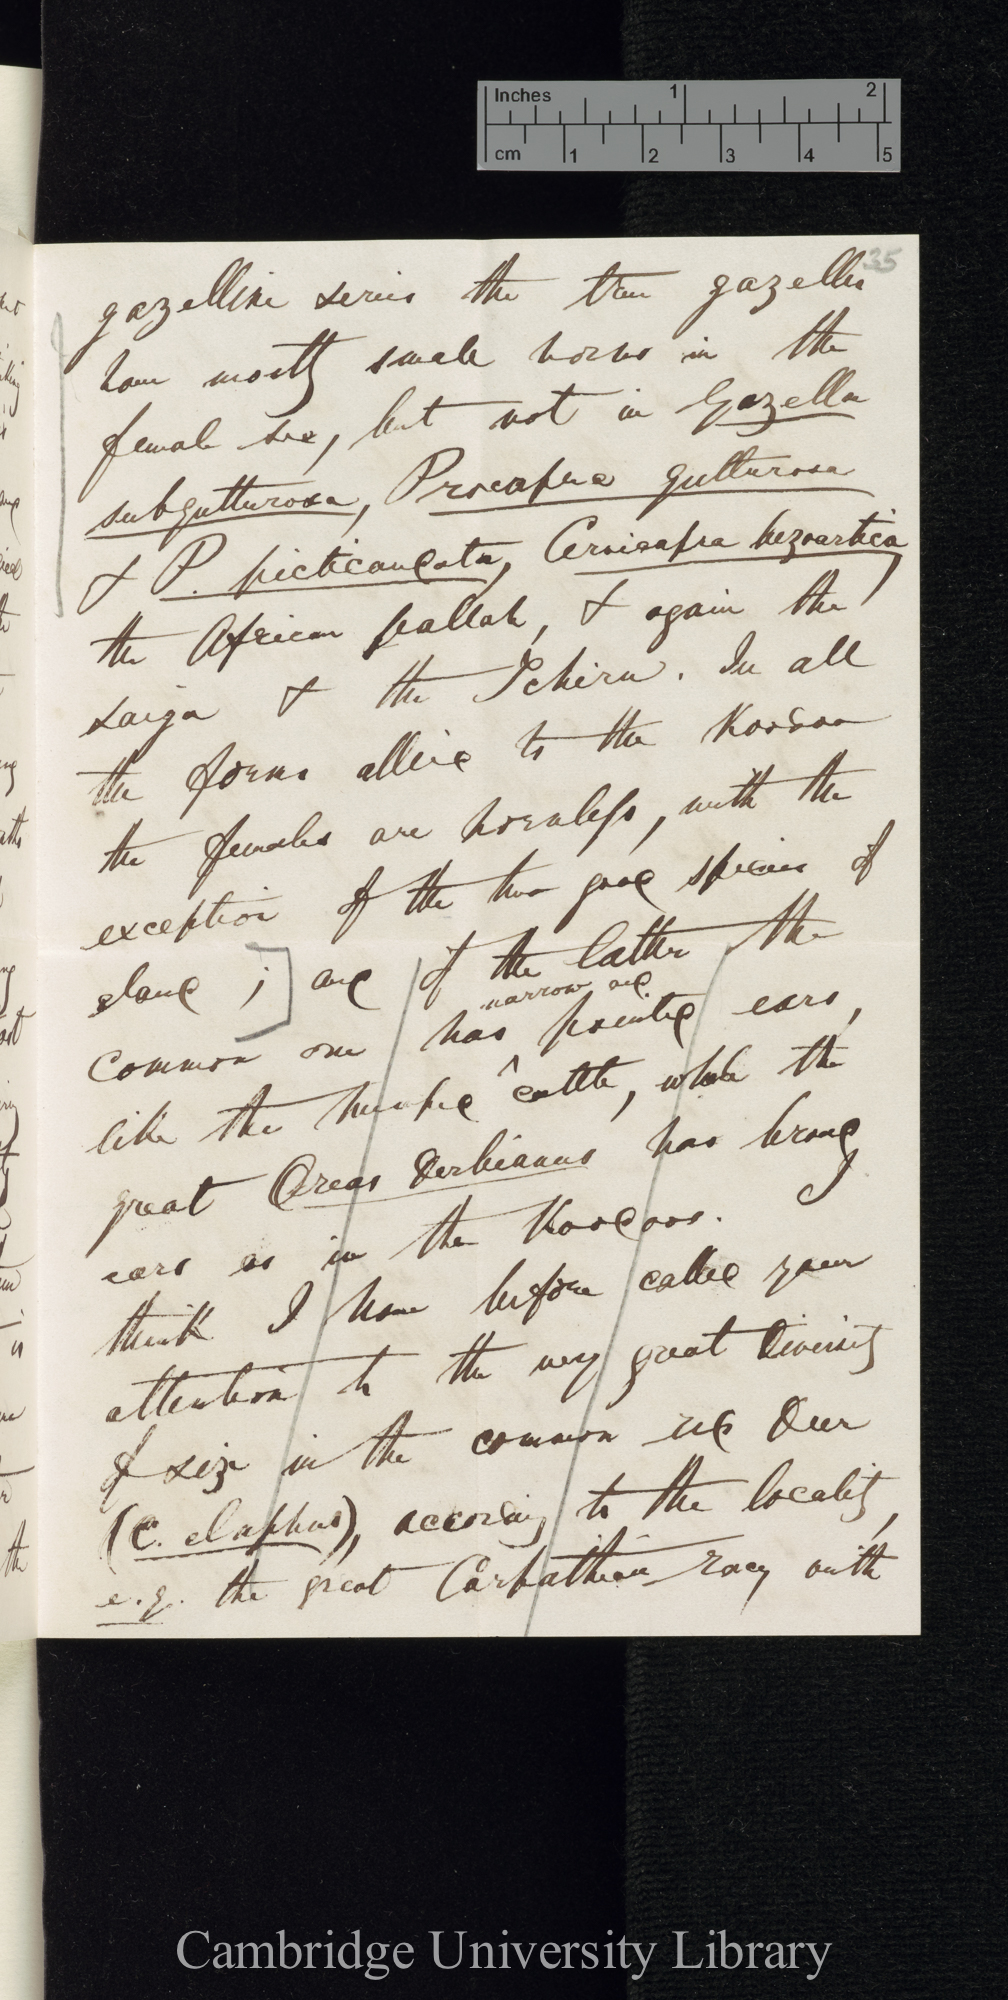 Inches 1 2
cm 1 2 3 4 5
35
gazelline series the true gazelles
have mostly small horns in the
female sex, but not in Gazella
subgutturosa, Procapra gutturosa
& P. picticaudata, Cervicapra bezoartica,
the African pallah, & again the
saiga & the Tchiru. In all
the forms allied to the Koodoo
the females are hornless, with the
exception of the two good species of
eland ;] and of the latter the
common one has narrow and pointed ears,
like the humped cattle, while the
great Oreas Derbianus has broad
ears as in the Koodoos. I
think I have before called your
attention to the very great diversity
of size in the common red Deer
(C. elaphus), according to the locality,
e.g. the great Carpathian race, with
Cambridge University Library